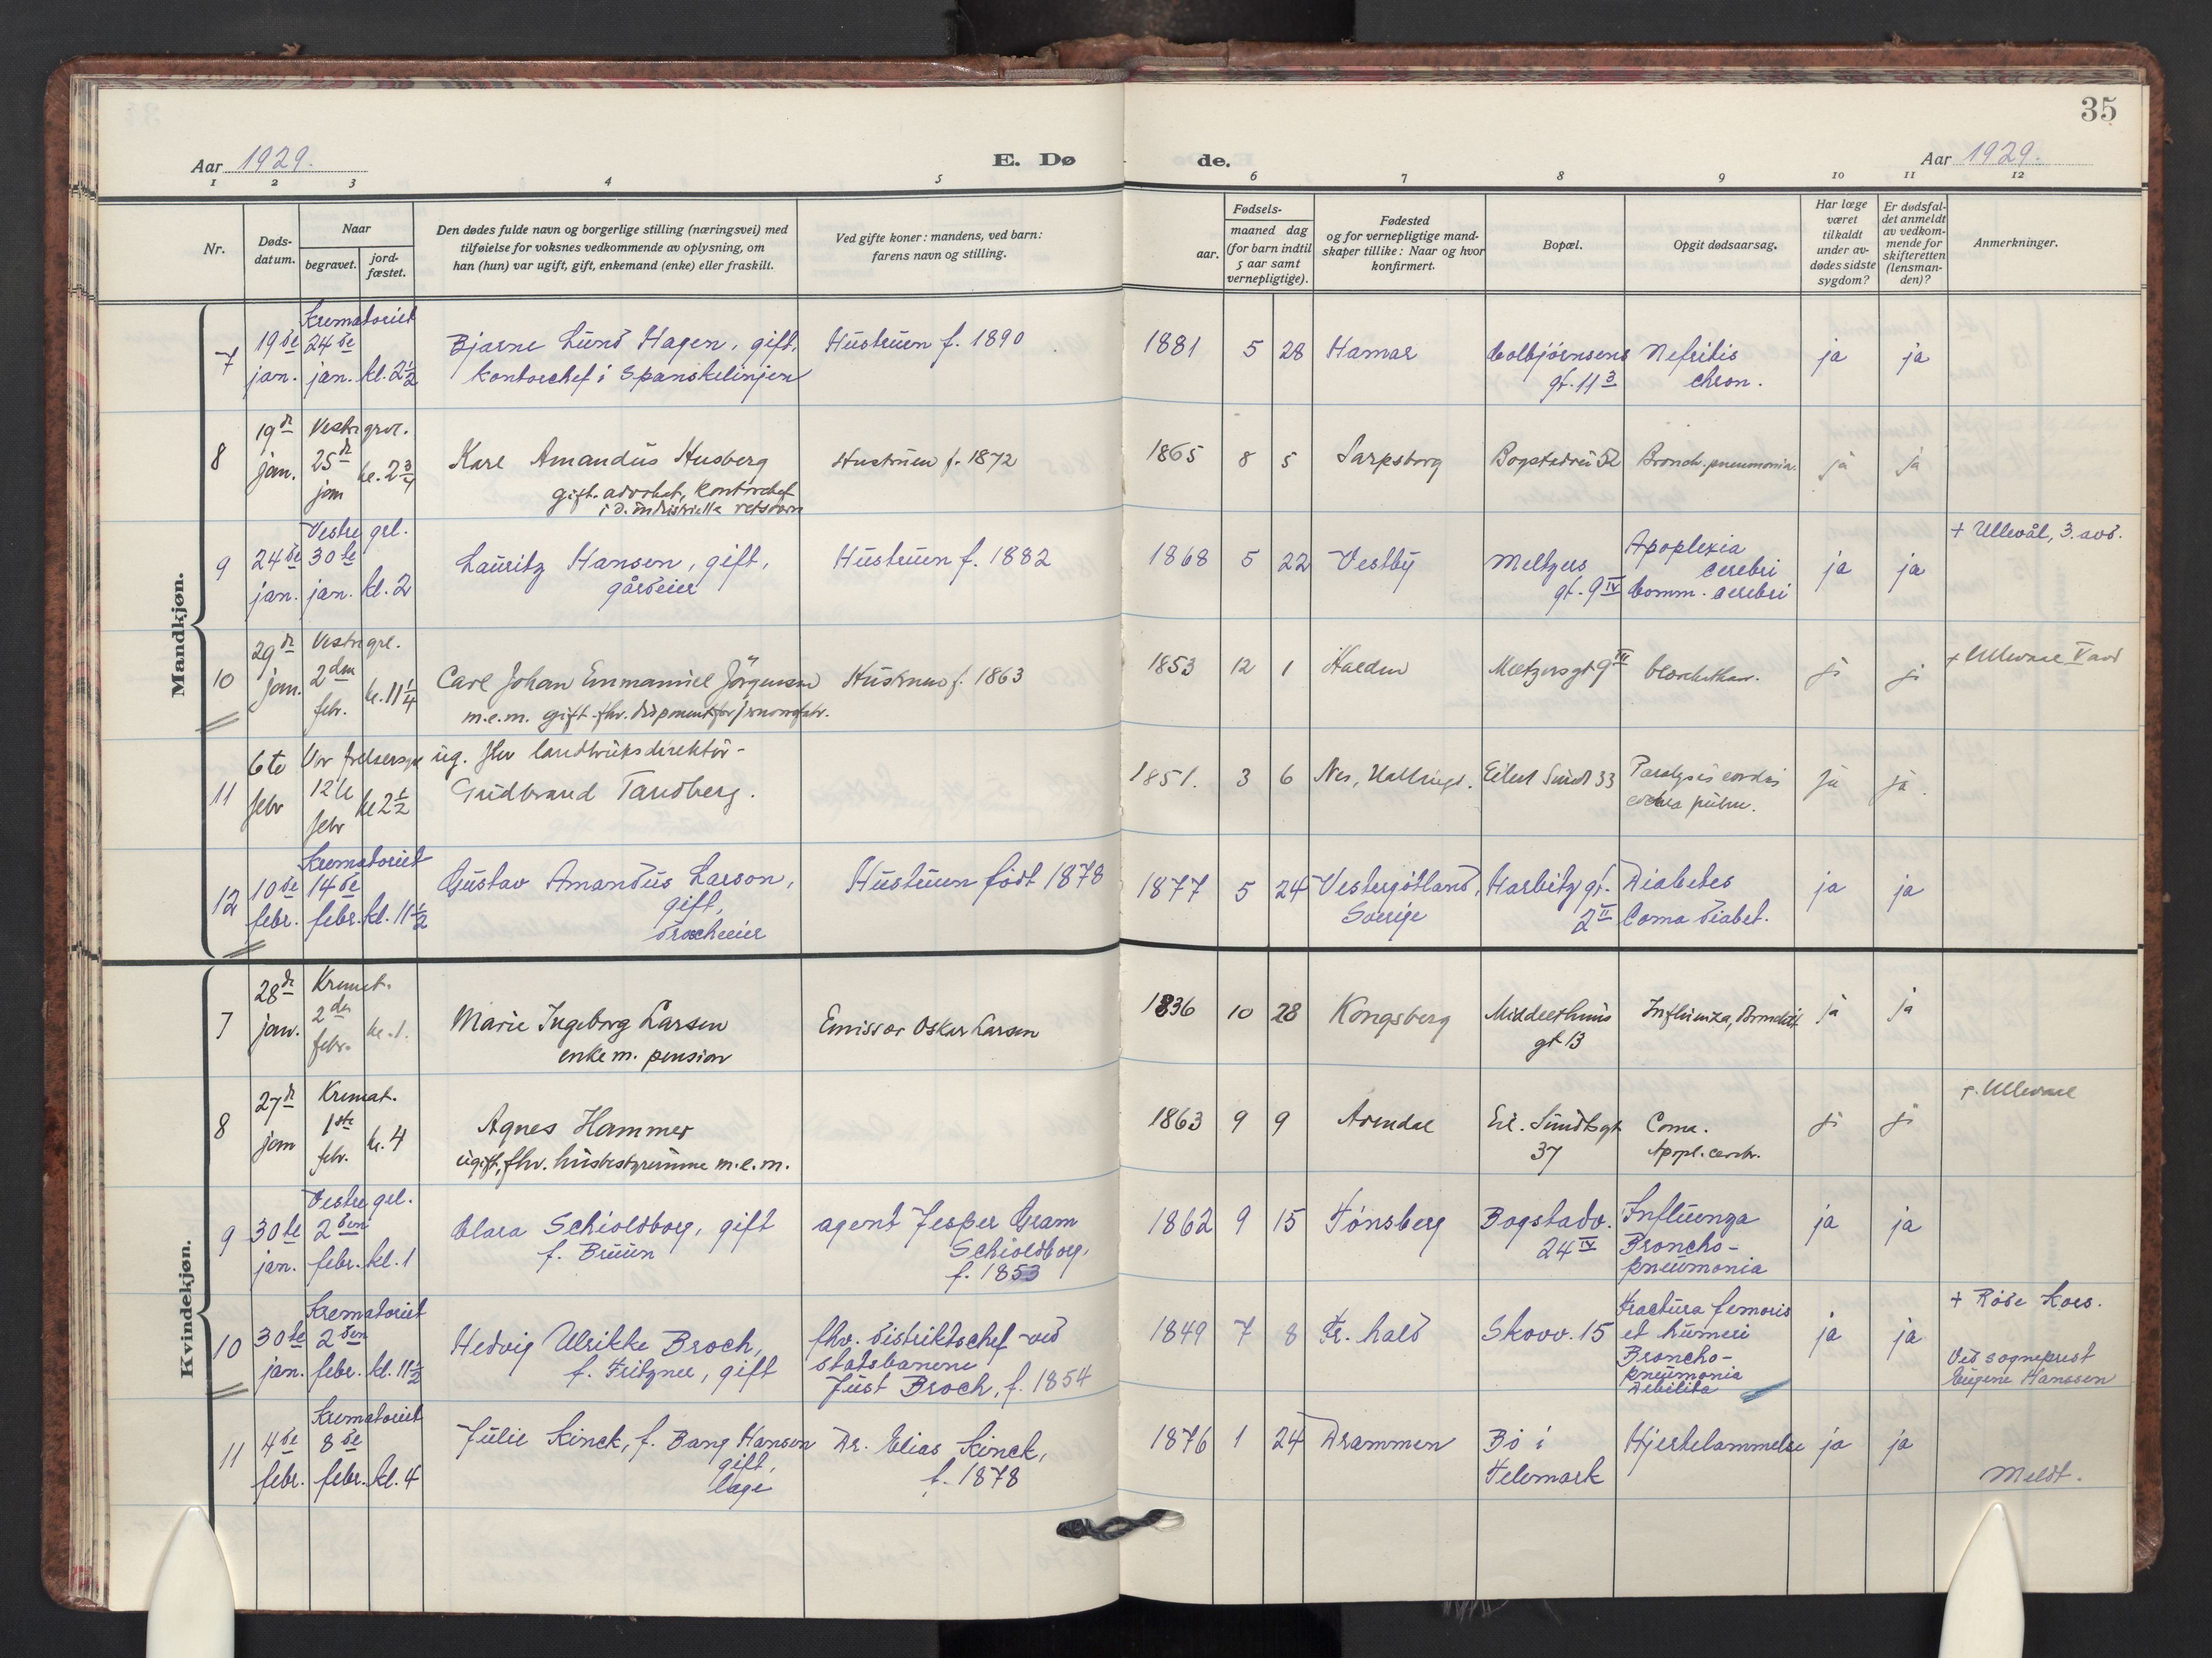 35
Aar 1929. E. Dø de. Aar 1929.
1 2 3 4 5 6 7 8 9 10 11 12
Nr.
Døds-
datum.
Naar
begravet.
jord-
fæstet.
Den dødes fulde navn og borgerlige stilling (næringsvei) med
tilføielse for voksnes vedkommende av oplysning, om
han (hun) var ugift, gift, enkemand (enke) eller fraskilt.
Ved gifte koner: mandens, ved barn:
farens navn og stilling.
Fødsels-
aar.
maaned dag
(for barn indtil
5 aar samt
vernepligtige).
Fødested
og for vernepligtige mand-
skaper tillike: Naar og hvor
konfirmert.
Bopæl.
Opgit dødsaarsag.
Har læge
været
tilkaldt
under av-
dødes sidste
sygdom?
Er dødsfal-
det anmeldt
av vedkom-
mende for
skifteretten
(lensman-
den)?
Anmerkninger.
Mandkjøn.
7
19de
jan.
Krematoriet
24de
jan. kl. 2½
Bjarne Lund Hagen, gift,
kontorchef i Spanskelinjen
Hustruen f. 1890
1881 5 28 Hamar
Colbjørnsens
gt. 11 3
Nefritis
chron.
ja ja
8
19de
jan.
Vestre grvl.
25de
jan kl. 2¾
Karl Amandus Husberg
gift. advokat, kontorchef
i d. industrielle retsvern
Hustruen f. 1872
1865 8 5 Sarpsborg Bogstadvei 52 Bronch. pneumonia. ja ja
9
24de
jan.
Vestre grl.
30te
jan. kl. 2
Lauritz Hansen, gift,
gårdeier
Hustruen f. 1882
1868 5 22 Vestby
Meltzers
gt. 9 IV
Apoplexia
cerebri
Comm. cerebri
ja ja
+ Ullevål, 3. avd.
10
29de
jan.
Vestre grl.
2den
febr. kl. 11¼
Carl Johan Emmanuel Jörgensen
m.e.m. gift. fhv. disponent for
Hustruen f. 1863
1853 12 1 Halden Meltzersgt 9 ji ji
+ Ullevaal V avd
11
6te
febr
Vor Frelsersgr
12te
febr kl 2½
ug. fhv landbruksdirektör -
Gudbrand Tandberg.
1851. 3 6 Nes, Hallingd. Eilert Sundt 33
Paralysis cordis
ja ja.
12
10de
febr.
Krematoriet
14de
febr. kl. 11½
Gustav Amandus Larson,
gift,
droscheeier
Hustruen født 1878
1877 5 24
Vestergötland,
Sverige
Harbitz gt.
2 II
Diabetes
Coma diabet.
ja ja
Kvindekjøn.
7
28de
jan.
Kremat.
2den
febr. kl. 1.
Marie Ingeborg Larsen
enke m. pension
Emissær Oskar Larsen
1836 10 28 Kongsberg
Middelthuns
gt 13
Influenza, Bronchit
ja ja
8
27de
jan
Kremat.
1ste
febr. kl. 4
Agnes Hammer
ugift, fhv. husbestyrerinne m.e.m.
1863 9 9 Arendal
Eil. Sundtsgt
37
Coma.
Apopl. cerebr.
ji ji
+. Ullevaal
9
30te
jan.
Vestre grl.
2den
febr. kl. 1
Clara Schioldborg, gift
f. Bruun
agent Jesper Gram
Schioldborg,
f. 1853
1862 9 15 Tønsberg
Bogstadv.
24 IV
Influenza
Broncho-
pneumonia
ja ja
10
30te
jan.
Krematoriet
2den
febr. kl. 11½
Hedvig Ulrikke Broch,
f. Fritzner, gift
fhv. distriktschef ved
statsbanene
Just Broch, f. 1854
1849 7 8 Fr. hald Skovv. 15
Fractura femoris
et humeri
Broncho-
pneumonia
Debilita
ja ja
+ Røde Kors.
Ved sogneprest
Eugene Hanssen
11
4de
febr.
Krematoriet
8de
febr. kl. 4
Julie Kinck, f. Bang Hanson
gift,
læge
Dr. Elias Kinck,
f. 1878
1876 1 24 Drammen
Bø i
Telemark
Hjertelammelse
ja ja
Meldt.